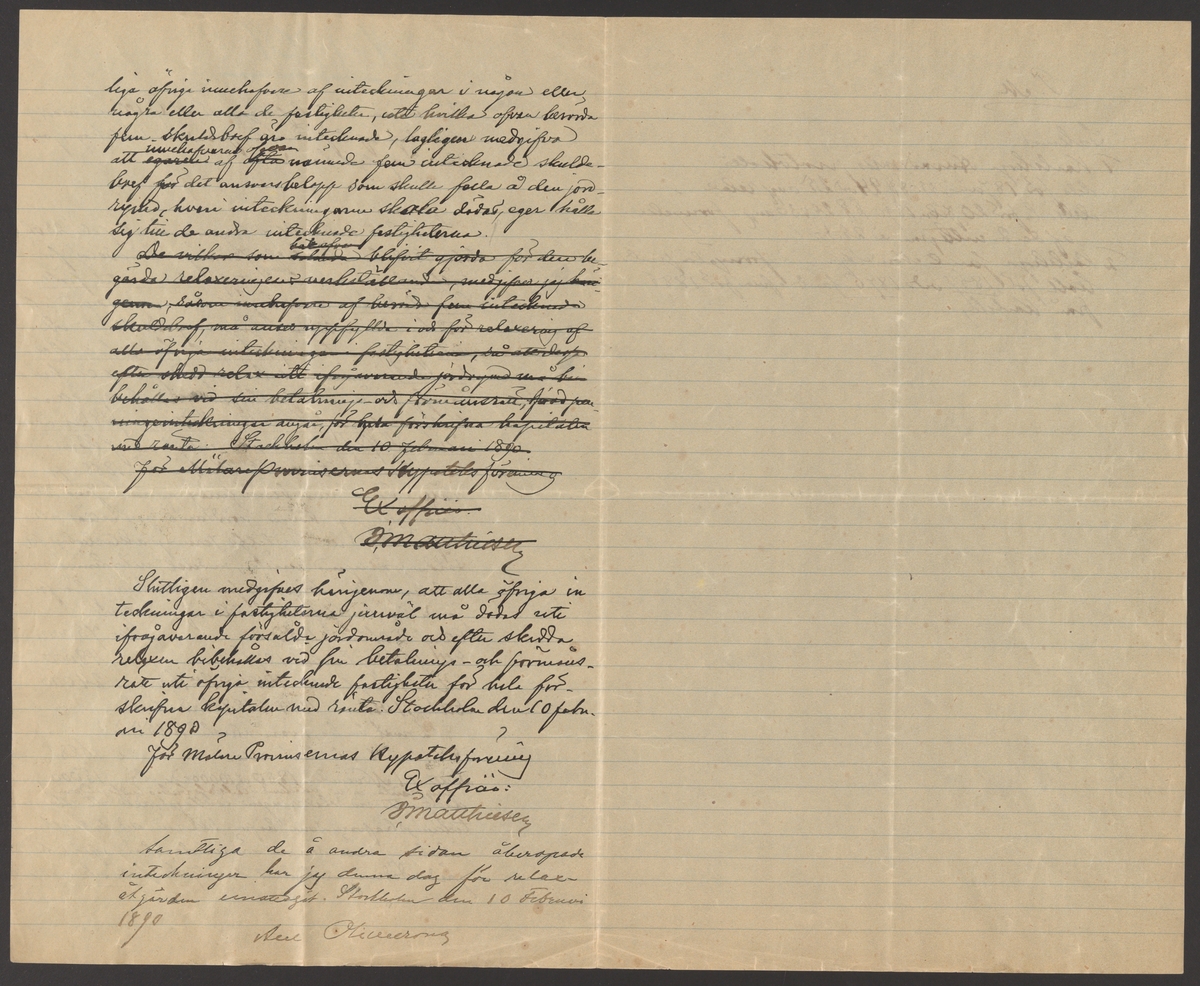 liga öfriga innehafvare af inteckningar i någon eller
några eller alla de fastigheter, uti hvilka ofvan berörda
fem skuldebref äro intecknade, lagligen medgifva
innehafvaren ofvan
att egaren af ofta nämnde fem intecknade skulde-
bref för det ansvarsbelopp som skulle falla å den jord-
rymd, hvari inteckningarne skola dödas, eger hålla
sig till de andra intecknade fastigheterna.
De vilkor som blifvit gjorda för den be-
gärda relaxeringens verkställande, medgifver jag här-
igenom, såsom innehafvare af berörda fem intecknade
skuldebref, må anses uppfyllda i och för relaxering af
alla öfriga inteckningar i fastigheterna, så att desse
efter skedd relax uti ifrågavarande jordrymd må bi-
behållas vid sin betalnings- och förmånsrätt,
ningsinteckningar angår, för hela förskrifna kapitalen
med ränta. Stockholm den 10 Februari 1890.
För Mälare Provinsernas Hypoteksförening
Ex officio:
D, Matthiesen
Slutligen medgifves härigenom, att alla öfriga in
teckningar i fastigheterna jemväl må dödas uti
ifrågavarande försålda jordområde och efter skedda
relaxen bibehållas vid sin betalnings- och förmåns-
rätt uti öfriga intecknade fastigheter för hela för-
skrifna kapitalen med ränta. Stockholm den 10 Febru-
ari 1890
För Mälare Provinsernas Hypoteksförening
Ex officio:
D, Matthiesen
Samtliga de å andra sidan åberopade
inteckningar har jag denna dag för relax-
åtgärden emottagit. Stockholm den 10 Februari
1890
Axel